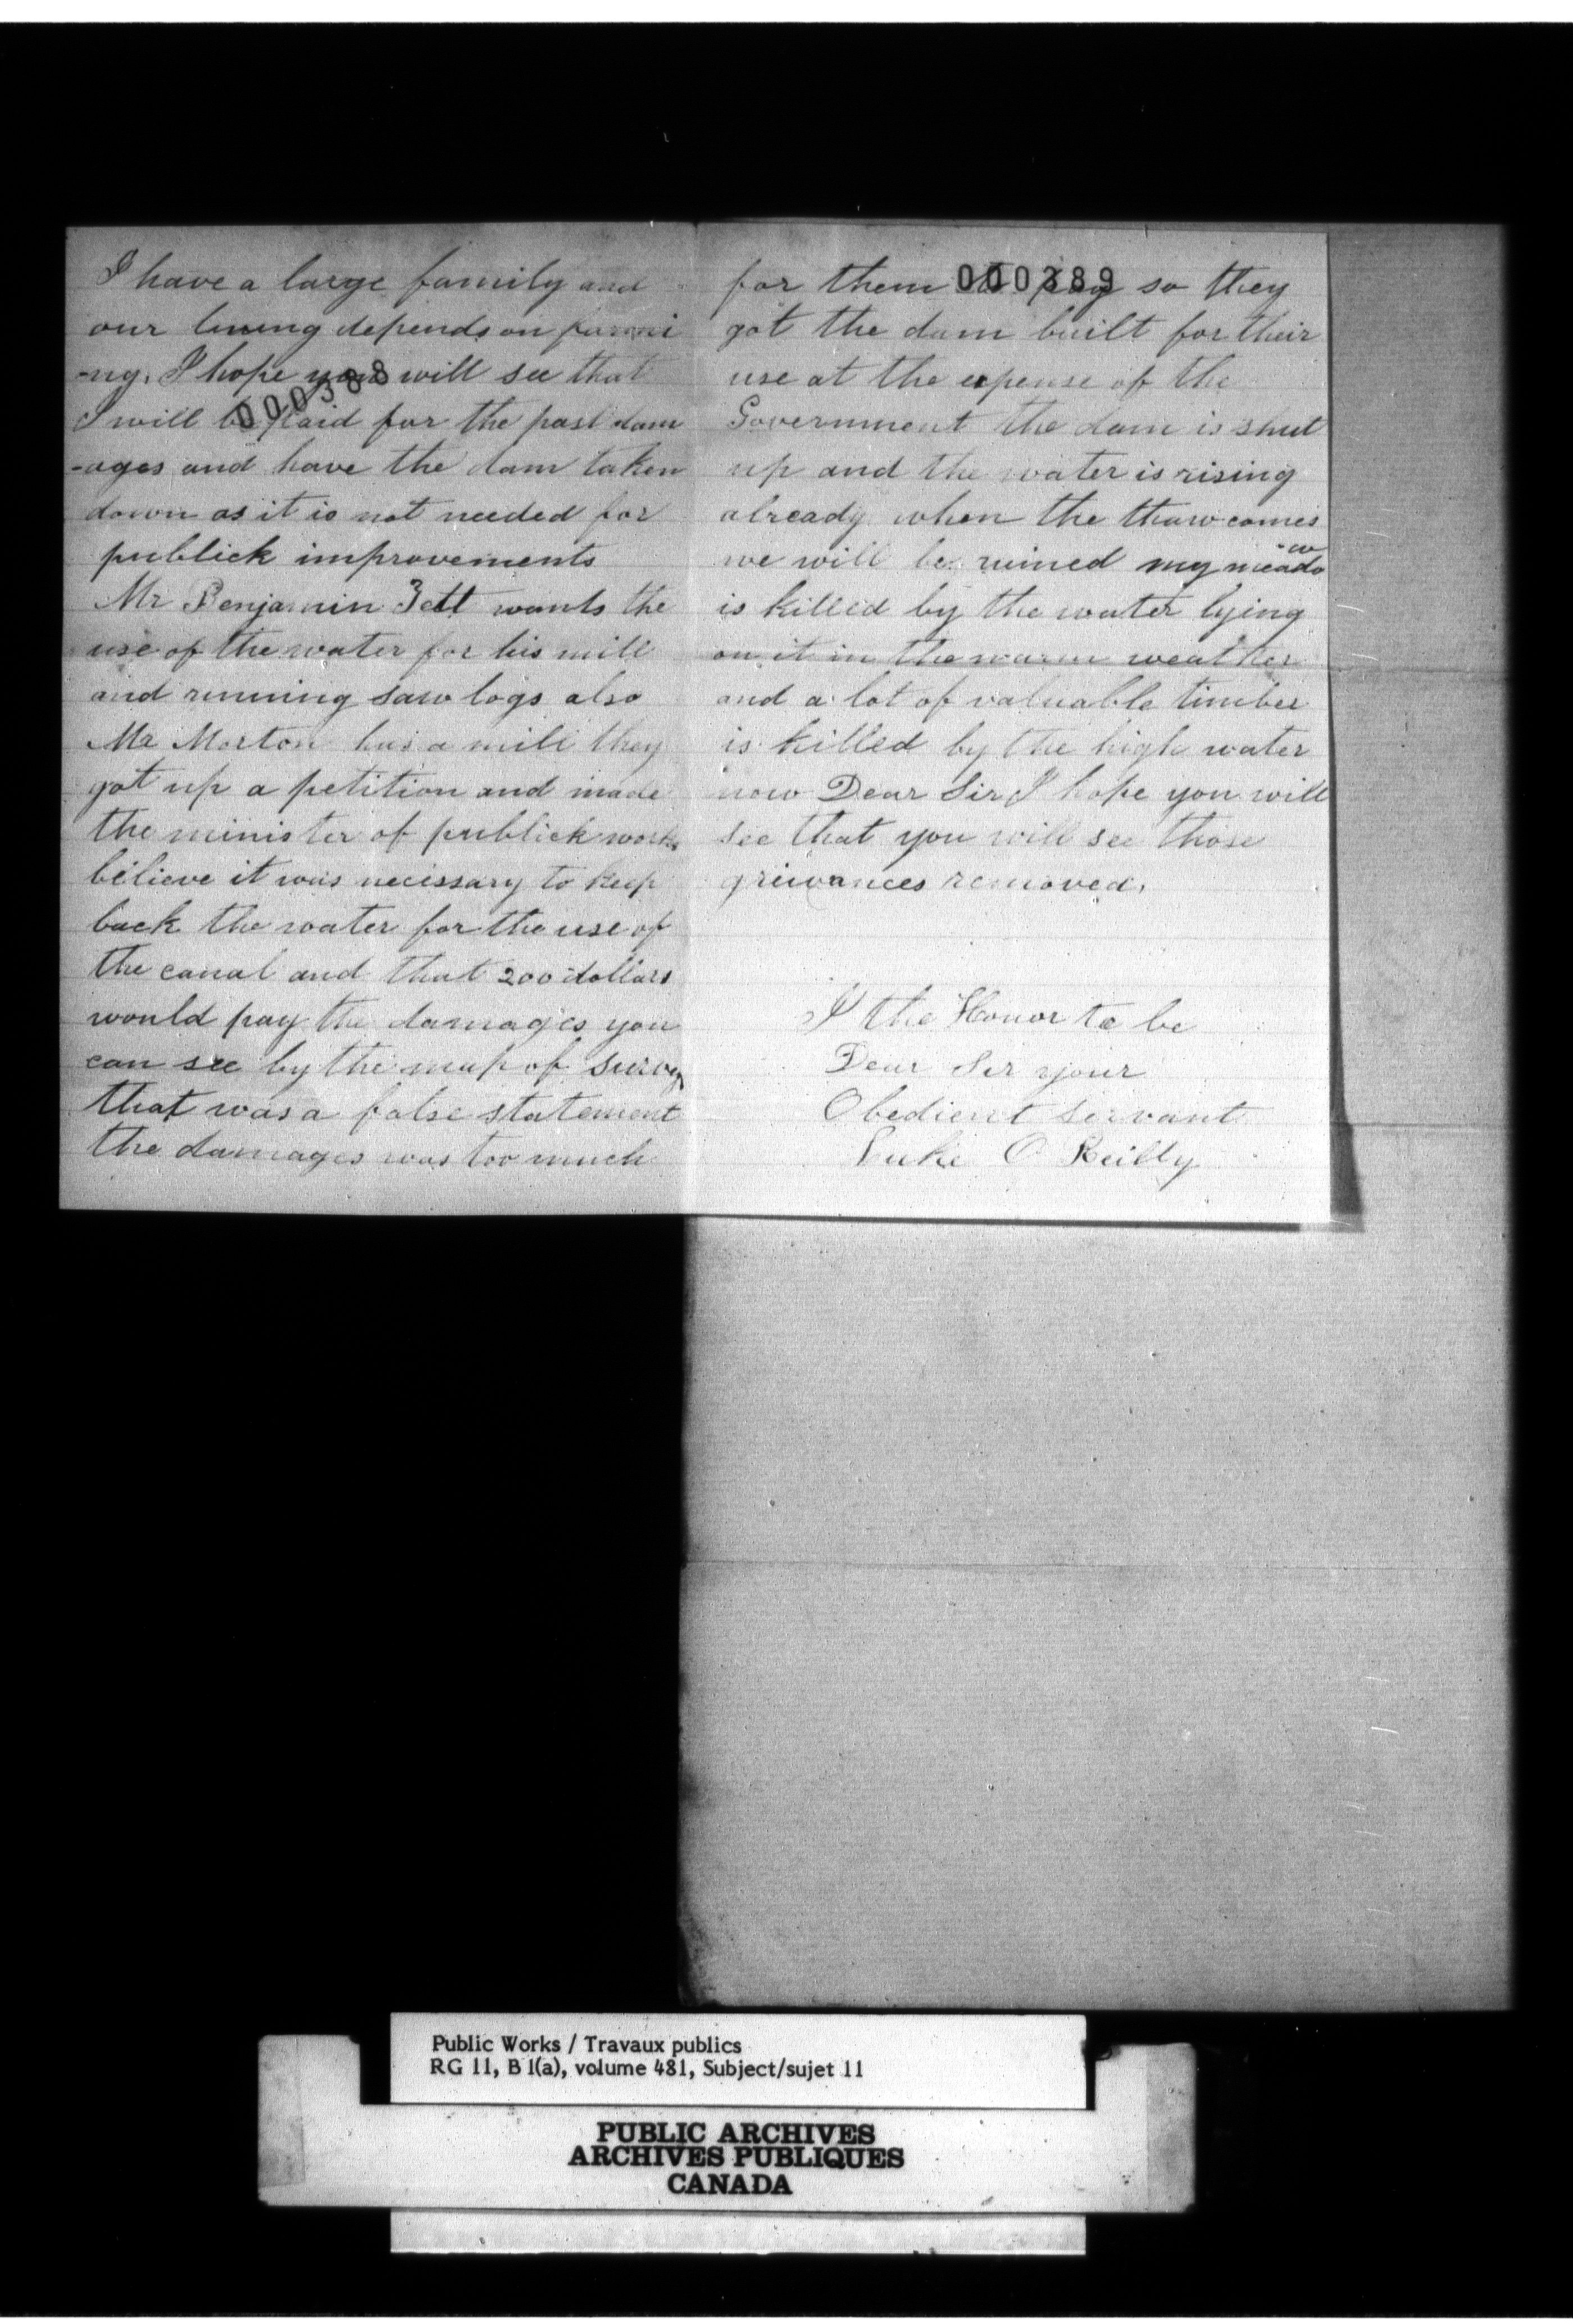 I have a large family and
our liveing depends on farmi
-ng. I hope you will see that
000388
I will be paid for the past dam
-ages and have the dam taken
down as it is not needed for
publick improvements
Mr Benjamin Tett wants the
use of the water for his mill
and running saw logs also
Mr Morton has a mill they
got up a petition and made
the minister of publick works
believe it was necissary to keep
back the water for the use of
the canal and that 200 dollars
would pay the damages you
can see by the map of survey
that was a false statement
the damages was too much
000389
for them to pay so they
got the dam built for their
use at the expense of the
Government the dam is shut
up and the water is rising
already when the thaw comes
we will be ruined my meado-w
is killed by the water lying
on it in the warm weather
and a lot of valuable timber
is killed by the high water
now Dear Sir I hope you will
see that you will see those
grievances removed.
I the Honor to be
Dear Sir your
Obedient Servant
Luke O Reilly
Public Works / Travaux publics
RG 11, B 1(a), volume 481, Subject/sujet 11
PUBLIC ARCHIVES
ARCHIVES PUBLIQUES
CANADA